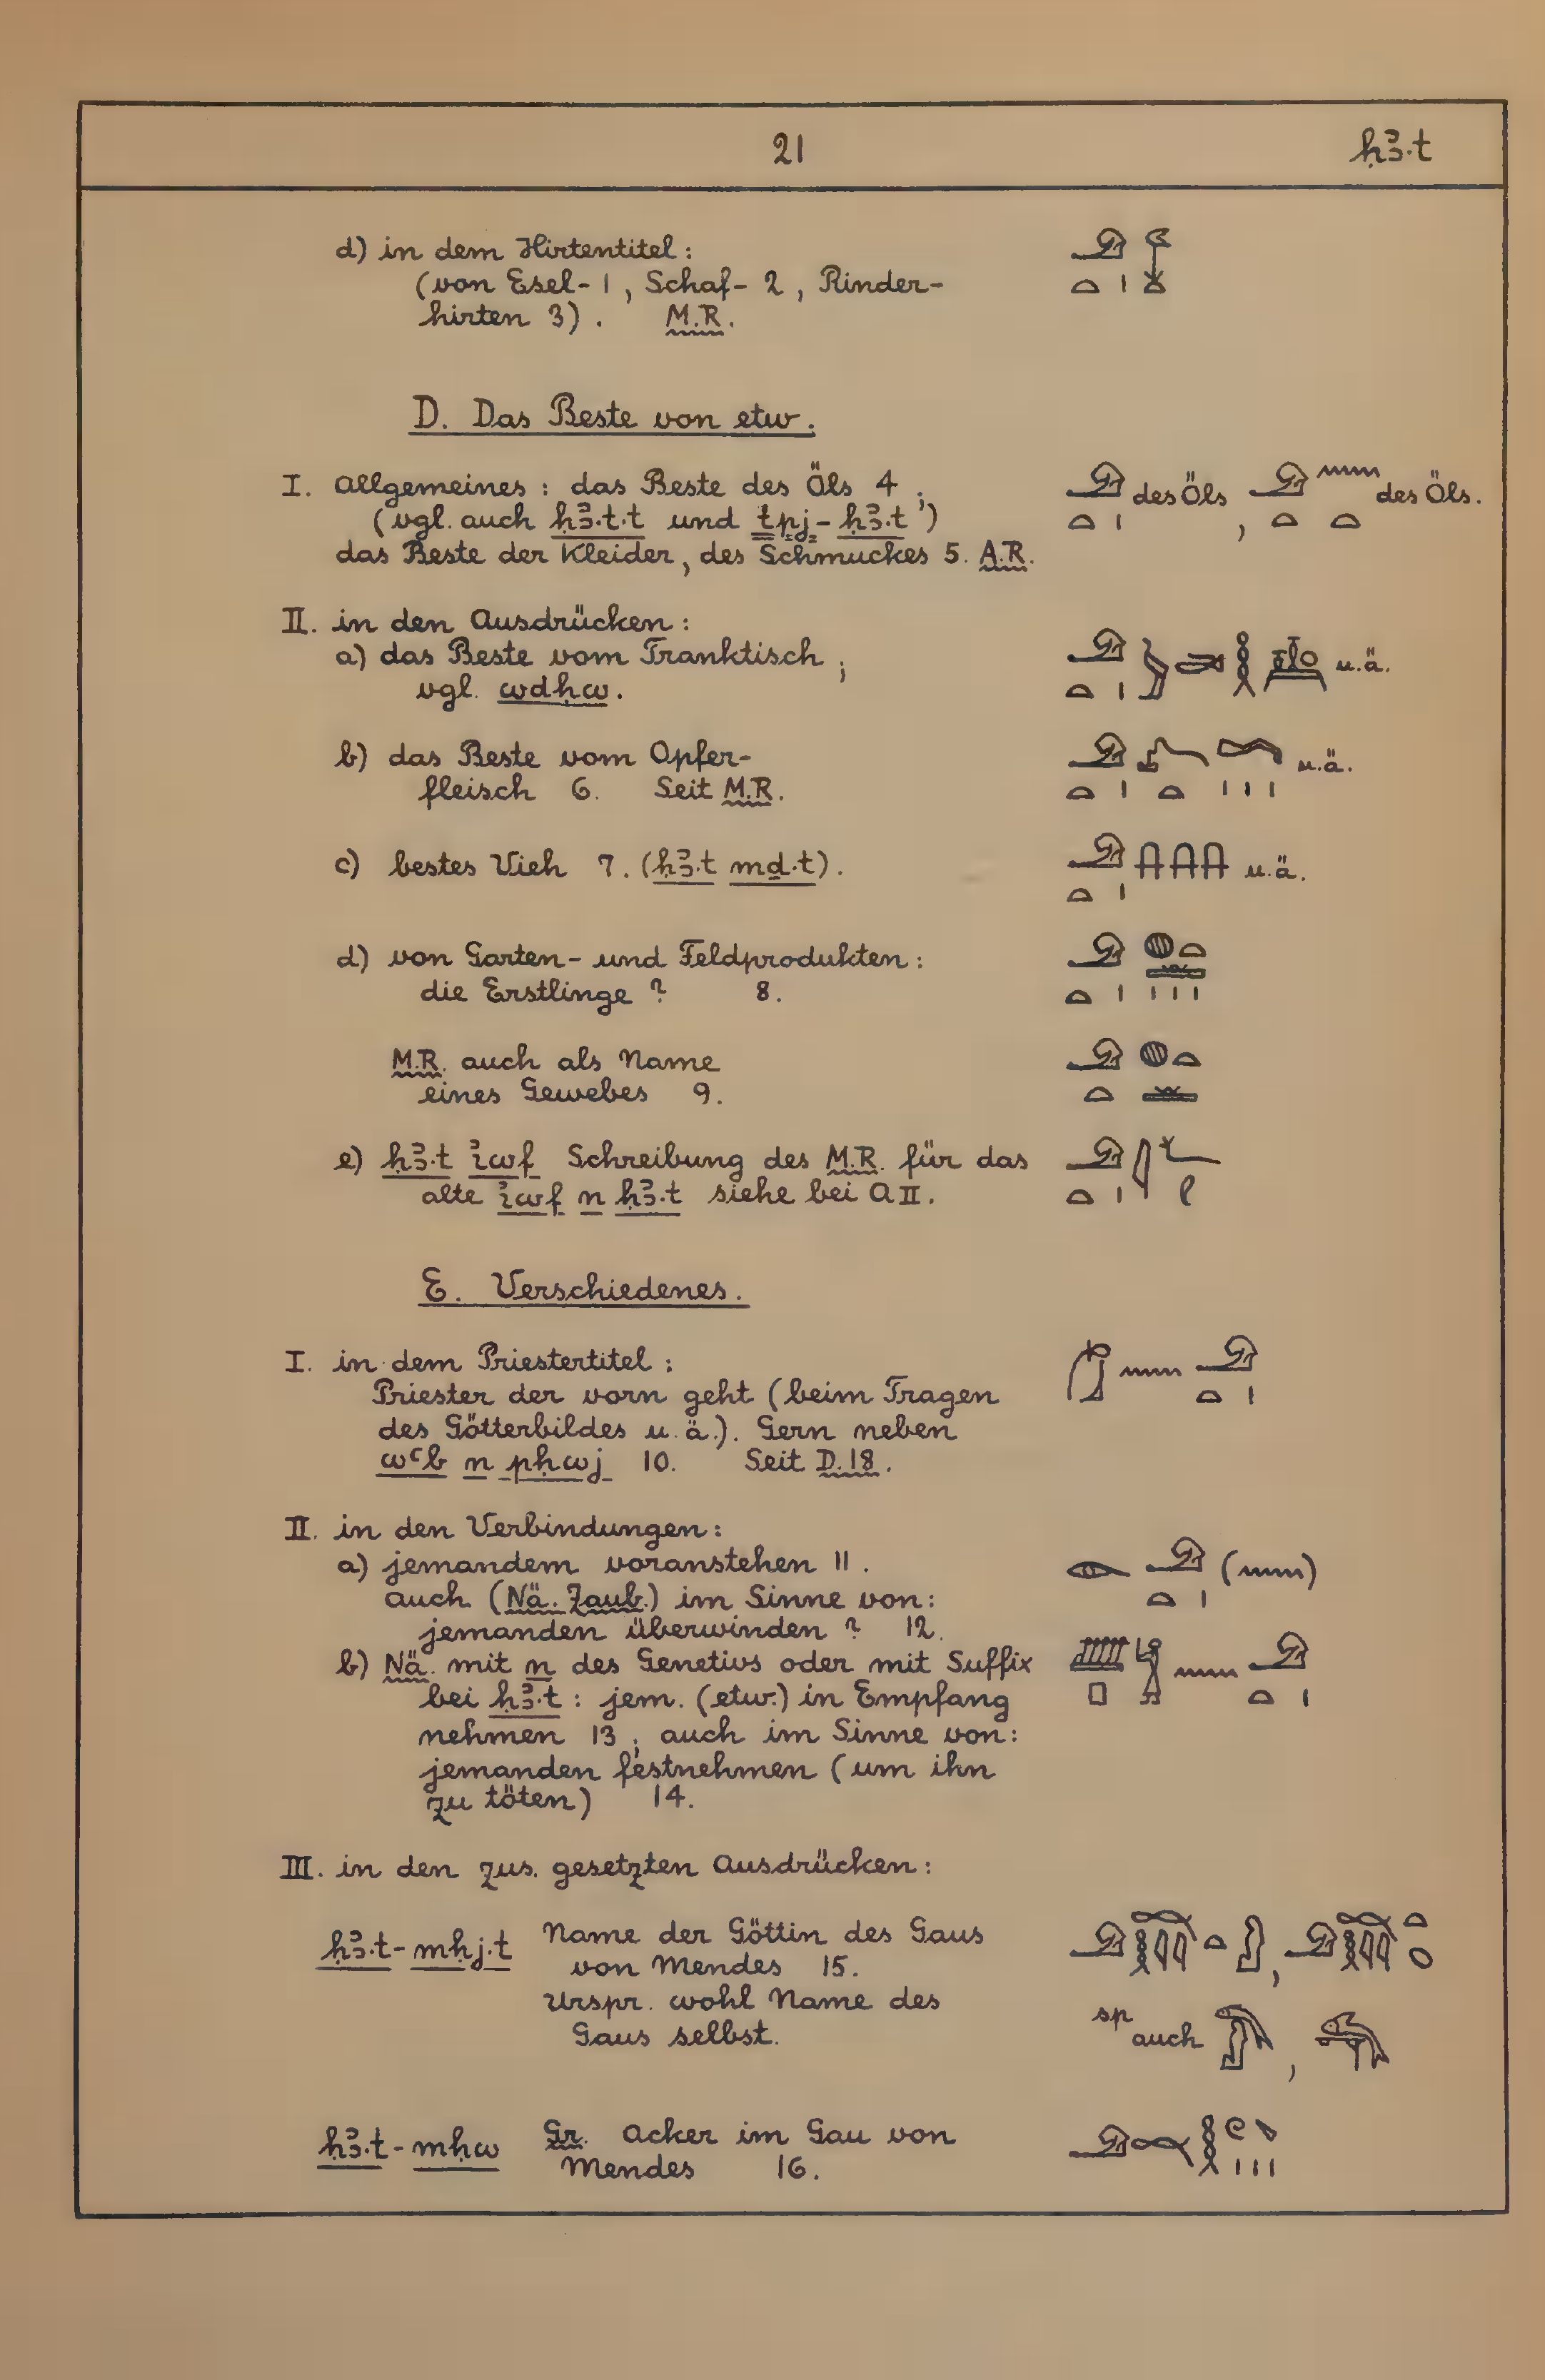 21 ḥꜣ.t
d) in dem Hirtentitel:
(von Esel- 1, Schaf- 2, Rinder-
hirten 3). M.R.
D. Das Beste von etw.
I. Allgemeines: das Beste des Öls 4; des Öls, des Öls.
(vgl. auch ḥꜣ.t.t und tpj-ḥꜣ.t)
das Beste der Kleider, des Schmuckes 5. A.R.
II. in den Ausdrücken:
a) das Beste vom Tranktisch; u.ä.
vgl. wdḥw.
b) das Beste vom Opfer- u.ä.
fleisch 6. Seit M.R.
c) bestes Vieh 7. (ḥꜣ.t mḏ.t). u.ä.
d) von Garten- und Feldprodukten:
die Erstlinge? 8.
M.R. auch als Name
eines Gewebes 9.
e) ḥꜣ.t ꞽwf Schreibung des M.R. für das
alte ꞽwf n ḥꜣ.t siehe bei A II.
E. Verschiedenes.
I. in dem Priestertitel:
Priester der vorn geht (beim Tragen
des Götterbildes u.ä.). Gern neben
wꜥb n pḥwj 10. Seit D.18.
II. in den Verbindungen:
a) jemandem voranstehen 11.
auch (Nä. Zaub.) im Sinne von:
jemanden überwinden? 12.
b) Nä. mit n des Genetivs oder mit Suffix
bei ḥꜣ.t: jem. (etw.) in Empfang
nehmen 13; auch im Sinne von:
jemanden festnehmen (um ihn
zu töten) 14.
III. in den zus. gesetzten Ausdrücken:
ḥꜣ.t-mḥj.t Name der Göttin des Gaus
von Mendes 15.
Urspr. wohl Name des
Gaus selbst. sp auch
ḥꜣ.t-mḥw Gr. Acker im Gau von
Mendes 16.